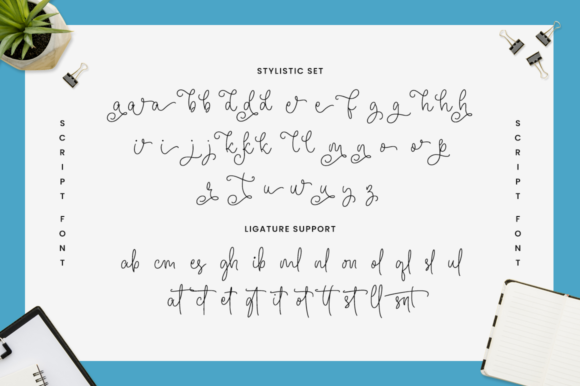 STYLISTIC SET
a a a a b b d d d e e f g g h h h
i i j j k k k l l m n o o r p
r t u w u y z
LIGATURE SUPPORT
ab cm es gh ib ml nl on ol ql sl ul
at ct et gt it ot tt st ll snt
SCRIPT FONT
SCRIPT FONT